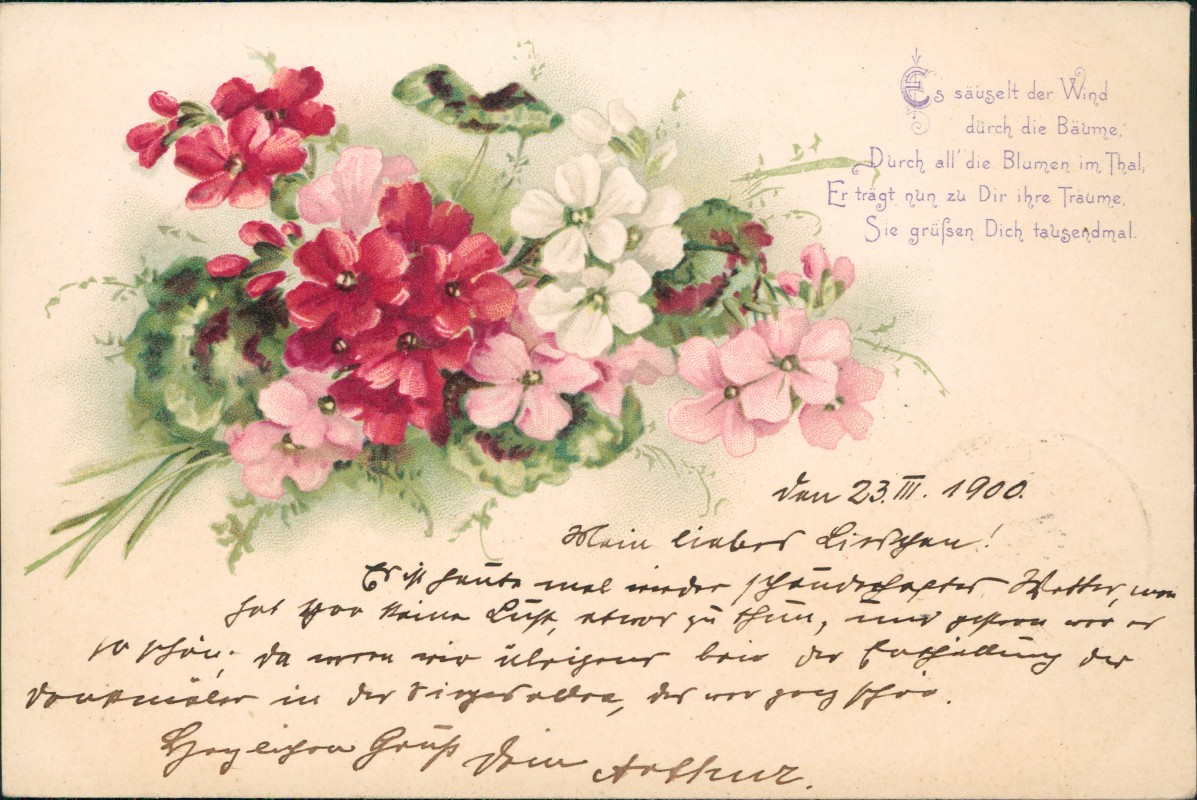 Es säuselt der Wind
durch die Bäume,
Durch all' die Blumen im Thal,
Er trägt nun zu Dir ihre Träume,
Sie grüßen Dich tausendmal.
den 23. III. 1900.
Mein liebes Lieschen!
Es ist heute mal wieder schauderhaftes Wetter, man
hat gar keine Lust, etwas zu thun, und gestern war es
so schön. Da waren wir übrigens bei der Enthüllung der
Denkmäler in der Siegesallee, das war ganz schön.
Herzlichen Gruß Dein Arthur.